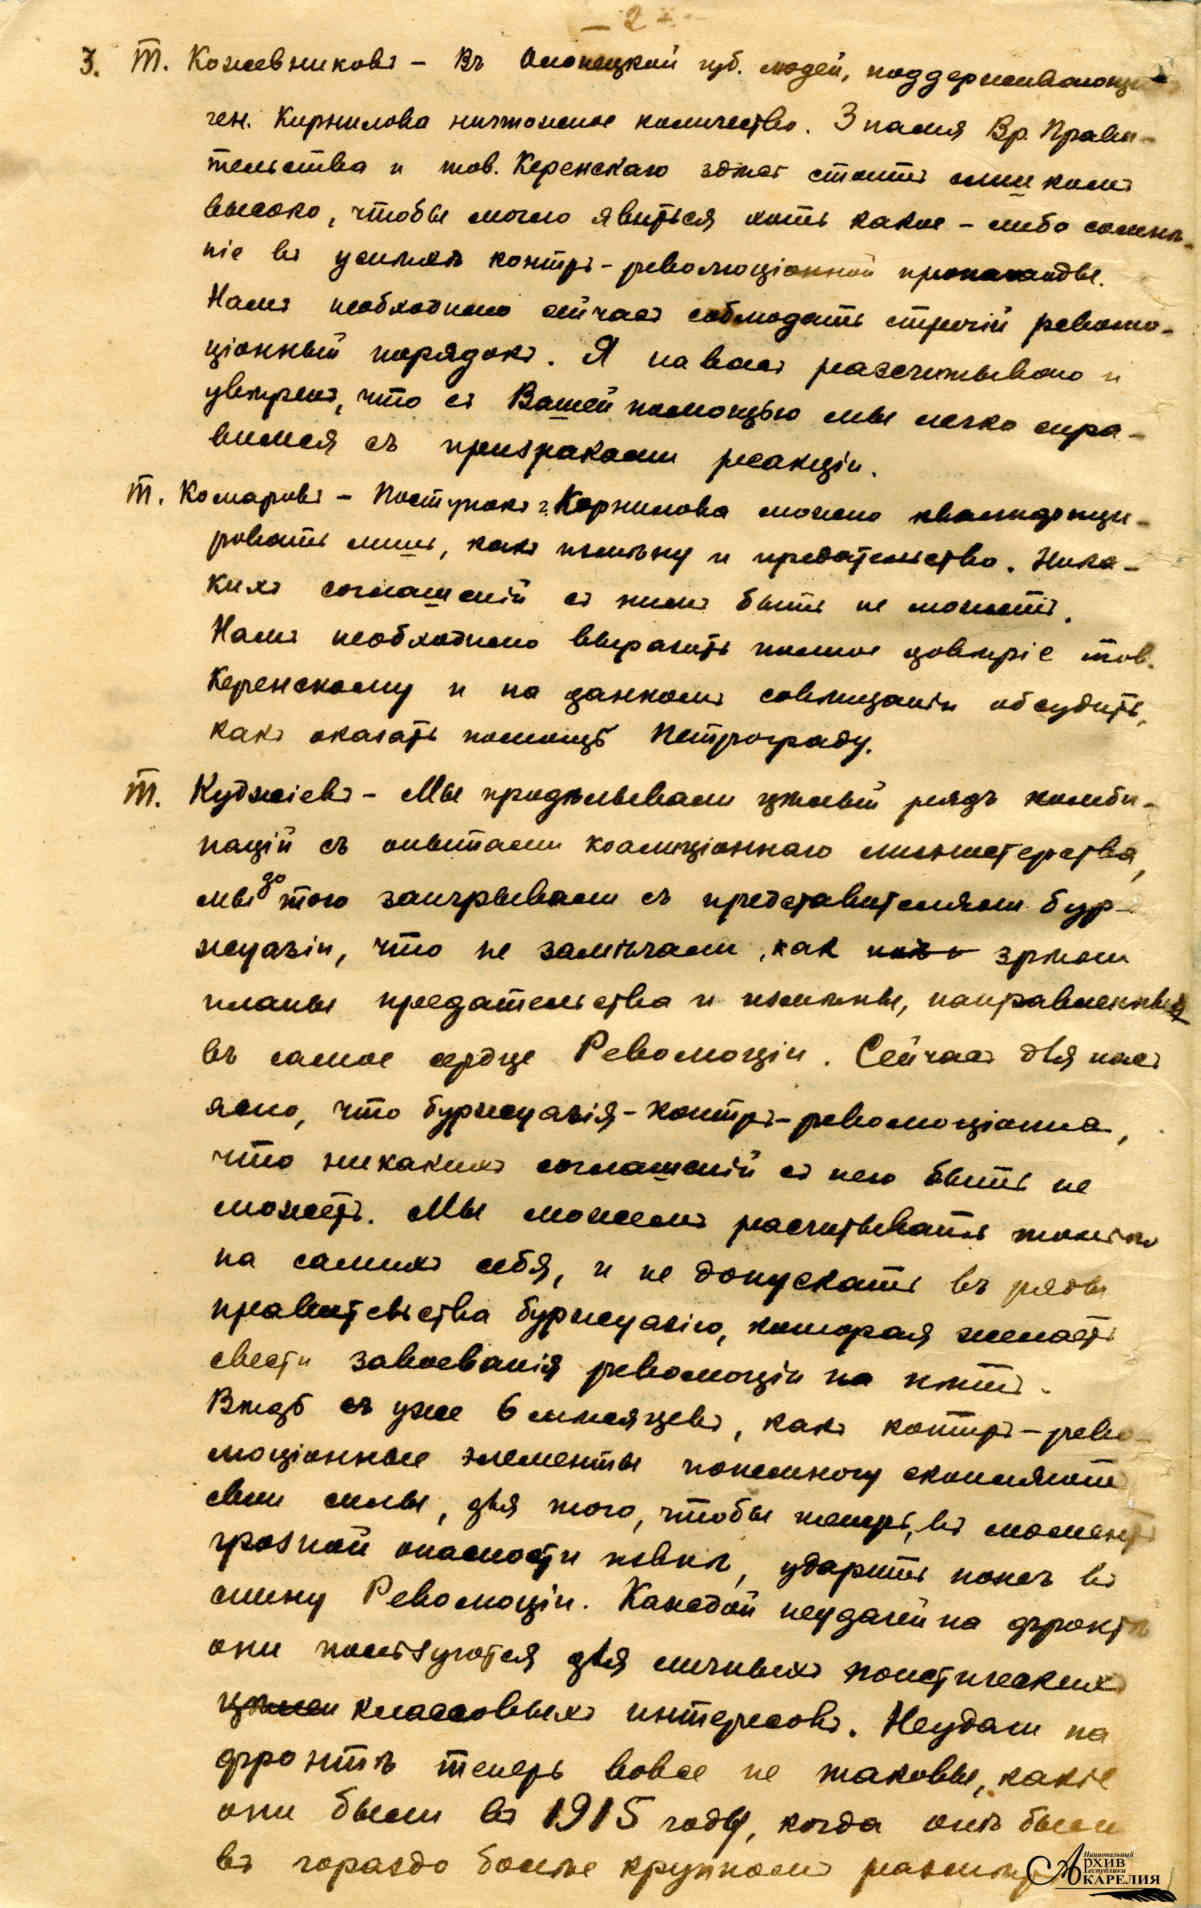 – 2 –
3. Т. Кожевниковъ – Въ Олонецкой губ. людей, поддерживающихъ
ген. Корнилова ничтожное количество. Знамя Вр. Прави-
тельства и тов. Керенскаго здѣсь стоитъ слишкомъ
высоко, чтобы могло явиться хоть какое-либо сомнѣ-
ніе въ успѣхѣ контръ-революціонной пропаганды.
Намъ необходимо сейчасъ соблюдать строгій револю-
ціонный порядокъ. Я на васъ разсчитываю и
увѣренъ, что съ Вашей помощью мы легко спра-
вимся съ призраками реакціи.
Т. Комаровъ – Поступокъ г. Корнилова можно квалифици-
ровать лишь, какъ измѣну и предательство. Ника-
кихъ соглашеній съ нимъ быть не можетъ.
Намъ необходимо выразить полное довѣріе тов.
Керенскому и на данномъ совѣщаніи обсудить,
какъ оказать помощь Петрограду.
Т. Куджіевъ – Мы продѣлывали цѣлый рядъ комби-
націй съ опытами коалиціоннаго министерства,
мы до того заигрывали съ представителями бур-
жуазіи, что не замѣчали, как зрѣли
планы предательства и измѣны, направленные
въ самое сердце Революціи. Сейчасъ для насъ
ясно, что буржуазія-контръ-революціонна,
что никакихъ соглашеній съ нею быть не
можетъ. Мы можемъ расчитывать только
на самихъ себя, и не допускать въ ряды
правительства буржуазію, которая желаетъ
свести завоеванія революціи на нѣтъ.
Вѣдь съ уже 6 мѣсяцевъ, какъ контръ-рево-
люціонные элементы понемногу скопляютъ
свои силы, для того, чтобы теперь, въ моментъ
грозной опасности извнѣ, ударить ножъ въ
спину Революціи. Каждой неудачей на фронтѣ
они пользуются для личныхъ политическихъ
классовыхъ интересовъ. Неудачи на
фронтѣ теперь вовсе не таковы, какіе
они были въ 1915 году, когда онѣ были
въ гораздо болѣе крупномъ размѣрѣ
Национальный
Архив
Республики
Карелия